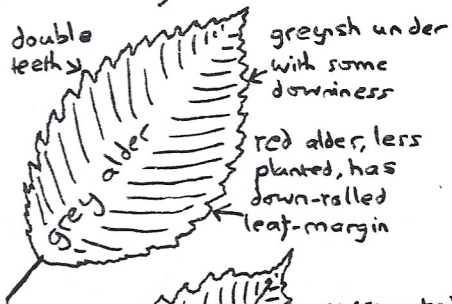 double
teeth
greyish under
with some
downiness
grey alder
red alder, less
planted, has
down-rolled
leaf-margin